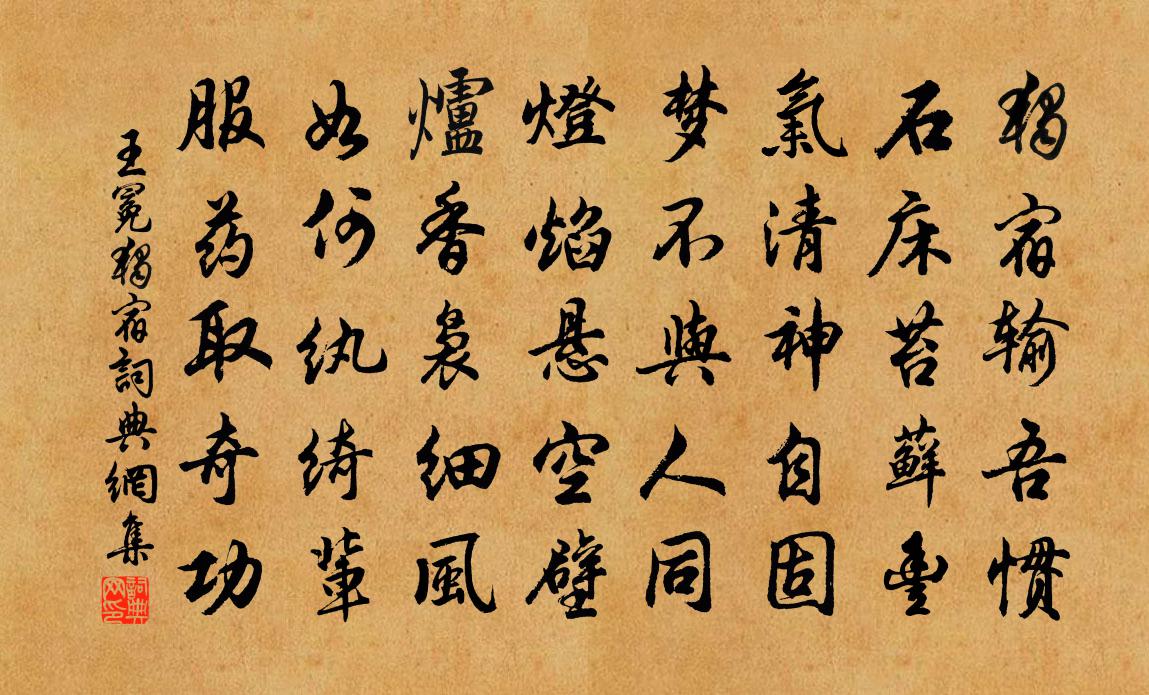 獨宿输吾慣
石床苔蘚豐
氣清神自固
梦不與人同
燈焰悬空壁
爐香裊細風
如何紈綺輩
服药取奇功
王冕獨宿詞典網集
詞典网印